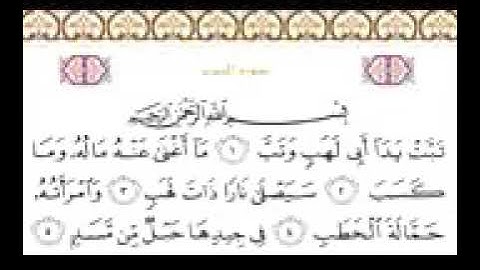 سورة المسد
بسم الله الرحمن الرحيم
تَبَّتْ يَدَا أَبِي لَهَبٍ وَتَبَّ ١ مَا أَغْنَىٰ عَنْهُ مَالُهُ وَمَا
كَسَبَ ٢ سَيَصْلَىٰ نَارًا ذَاتَ لَهَبٍ ٣ وَامْرَأَتُهُ
حَمَّالَةَ الْحَطَبِ ٤ فِي جِيدِهَا حَبْلٌ مِّن مَّسَدٍ ٥